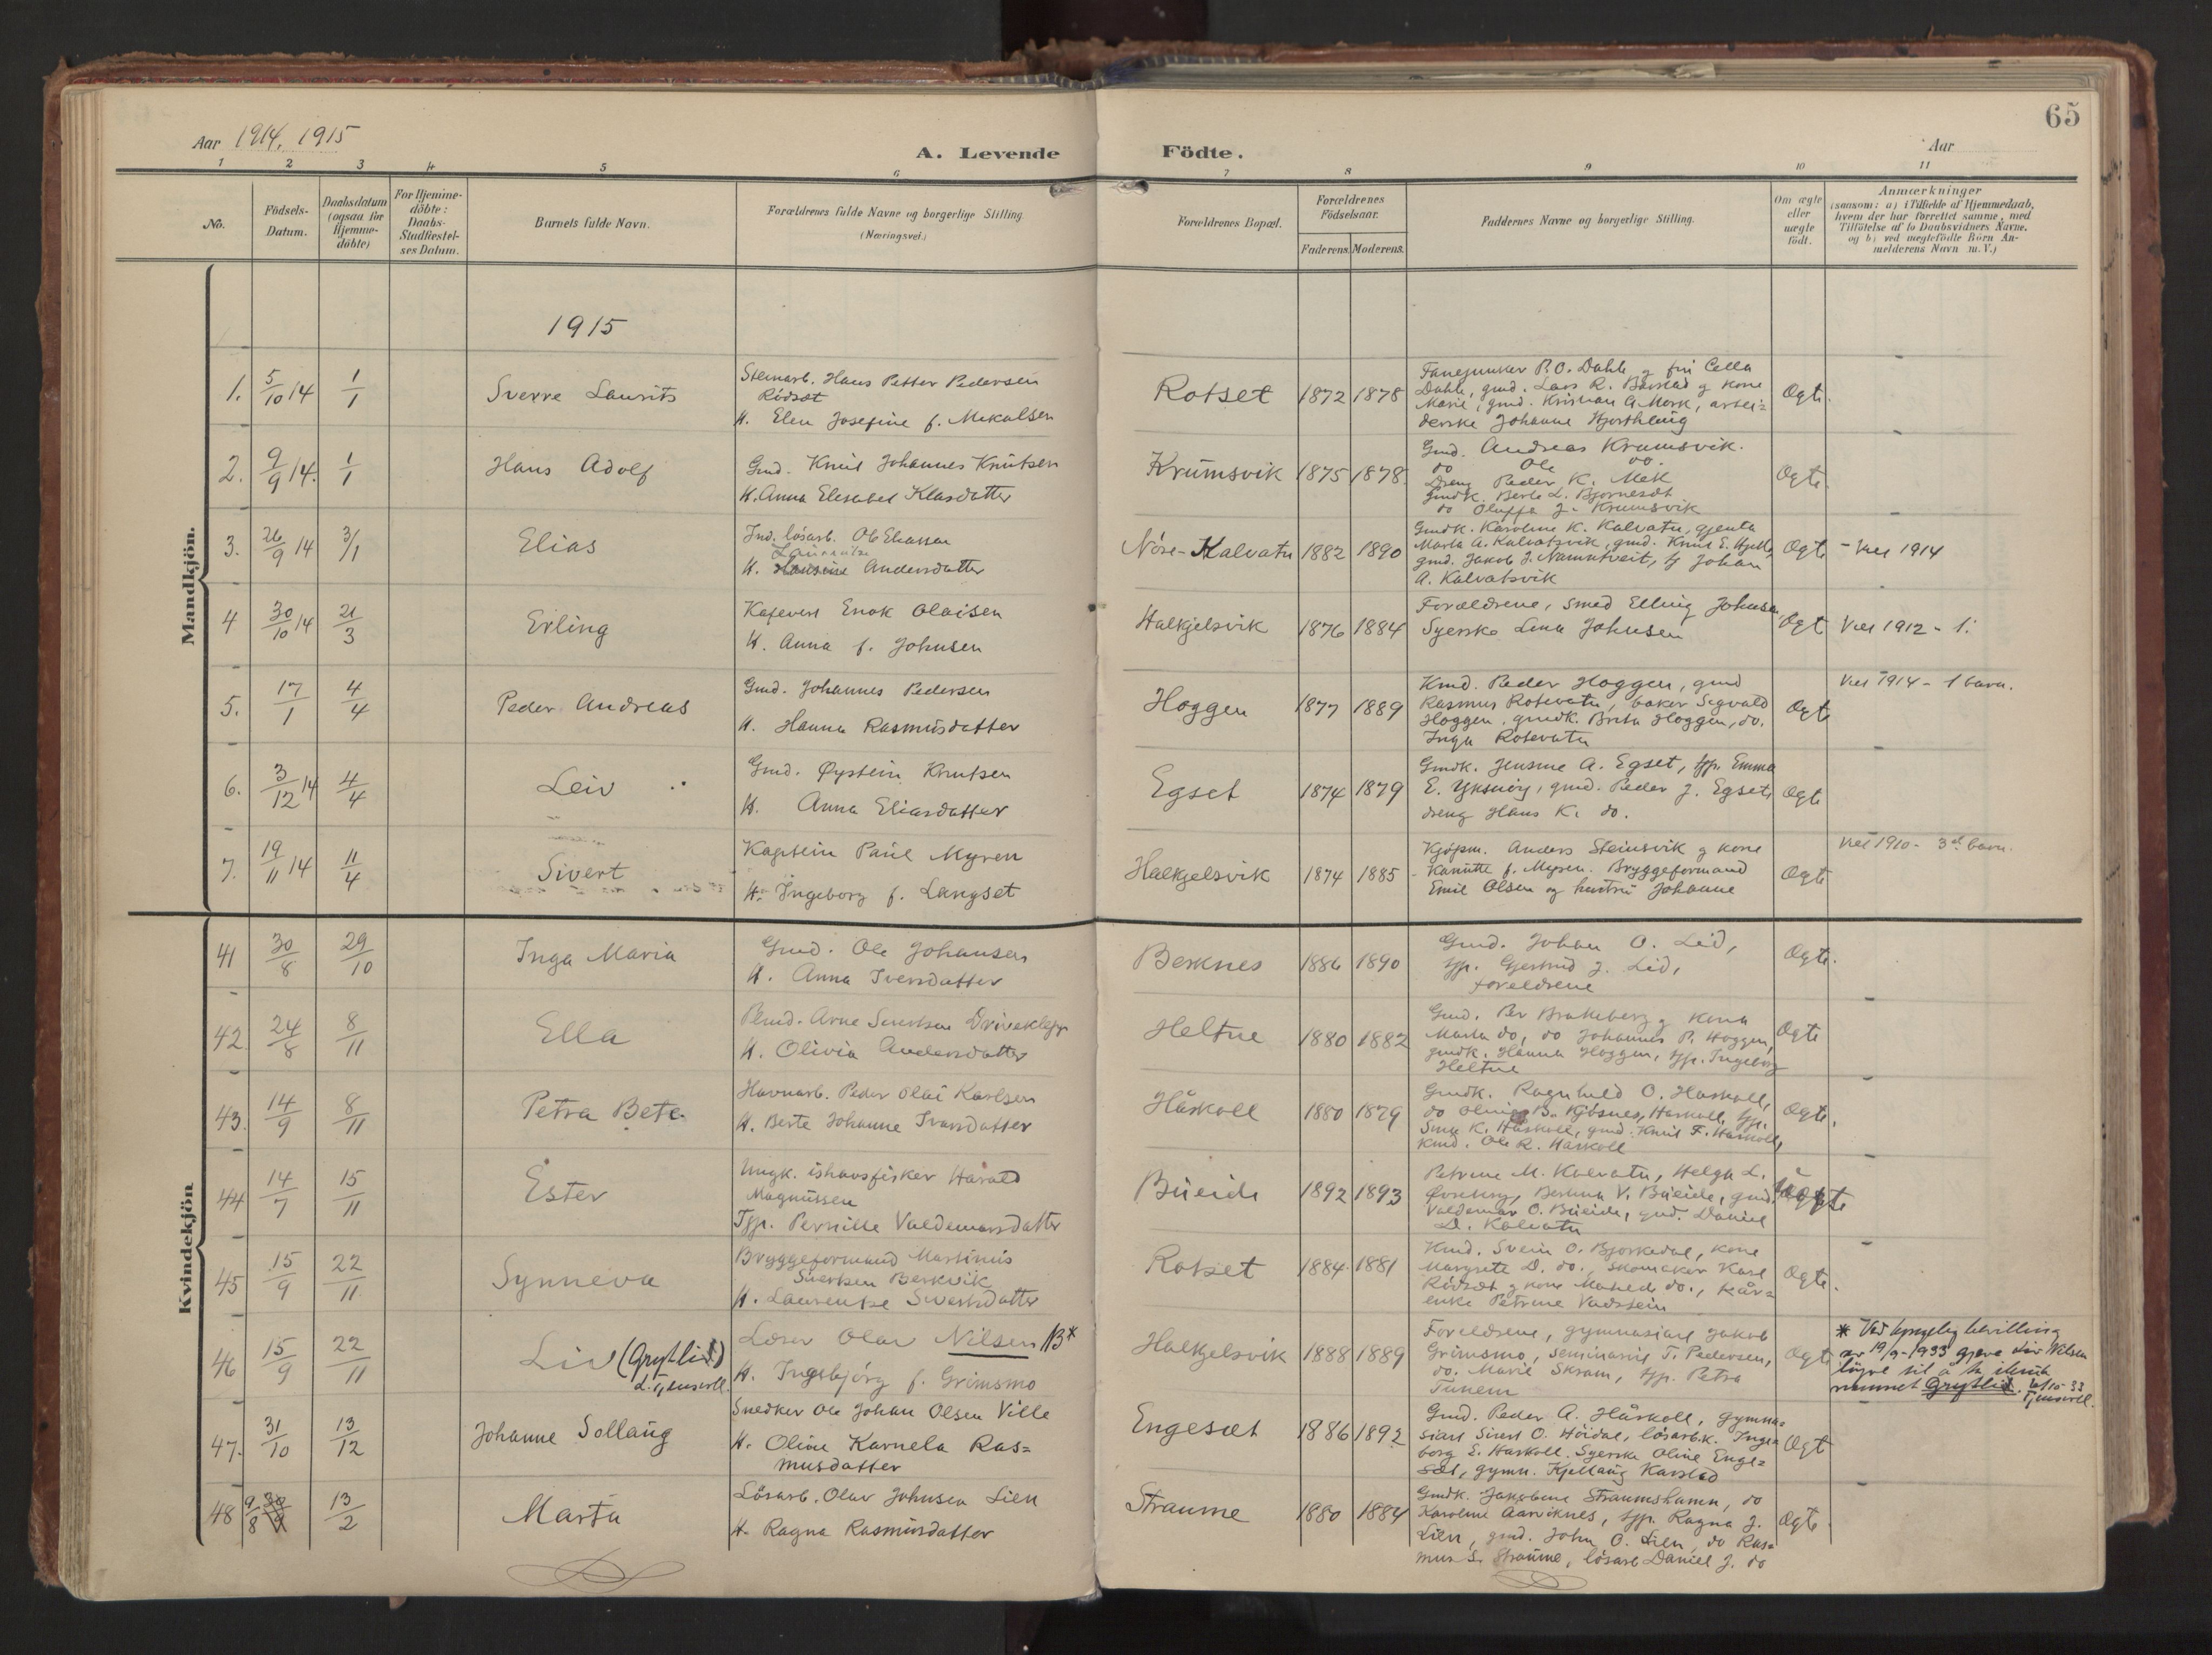 65
Aar 1914, 1915
A. Levende Födte.
Aar
1 2 3 4 5 6 7 8 9 10 11
No.
Födsels-
Datum.
Daabsdatum
(ogsaa for
Hjemme-
döbte)
For Hjemme-
döbte:
Daabs-
Stadfæstel-
ses Datum.
Barnets fulde Navn.
Forældrenes fulde Navne og borgerlige Stilling
(Næringsvei.)
Forældrenes Bopæl.
Forældrenes
Födselsaar.
Faderens. Moderens.
Faddernes Navne og borgerlige Stilling.
Om ægte
eller
uægte
födt.
Anmærkninger
(saasom: a) i Tilfælde af Hjemmedaab,
hvem der har forrettet samme, med
Tilföielse af to Daabsvidners Navne.
og b) ved uægtefödte Börn An-
melderens Navn m. V.)
Mandkjön.
1915
1. 5/10 14 1/1 Sverre Laurits
Stenarb. Hans Petter Pedersen
Rödsæt
H. Elen Josefine f. Mekalsen
Rotset 1872 1878
Fanejunker P.O. Dahle og fru Cella
Dahle, gmd. Lars R. Barstad og kone
Marie, gmd. Kristian A. Mork, arbei=
derske Johanne Hjorthaug
Ogte.
2. 9/9 14. 1/1 Hans Adolf
Gmd. Knut Johannes Knutsen
H. Anna Elesabet Klasdatter
Krumsvik 1875 1878.
Gmd. Andreas Krumsvik.
do Ole do.
Dreng Peder K. Mek
Gmdk. Berte L. Bjornesæt
do Oluffa J. Krumsvik
Ogte.
3. 26/9 14 3/1 Elias
Ind. lösarb. Ole Eliassen
H. Andersdatter
Nóre-Kalvatn 1882 1890
Gmdk. Karoline K. Kalvatn, gjenta
Marta A. Kalvatsvik, gmd. Knut E. Hjelle
gmd. Jakob J. Navnntveit, Johan
A. Kalvatsvik
Ogte
- Viet 1914
4 30/10 14 21/3 Erling
Kafevert Enok Olaisen
H. Anna f. Johnsen
Halkjelsvik 1876 1884
Forældrene, smed Elling Johnsen
Syerske Lina Johnsen
Ogt
Viet 1912 - 1.
5. 17/1 4/4 Peder Andreas
Gmd. Johannes Pedersen
H. Hanna Rasmusdatter
Hoggen 1877 1889
Kmd. Peder Hoggen, gmd
Rasmus Rotevatn, baker Sigvald
Hoggen, gmdk. Brita Hoggen, do.
Inga Rotevatn
Ogte
Viet 1914 - 1 barn.
6. 3/12 14 4/4 Leiv
Gmd. Øystein Knutsen
H. Anna Eliasdatter
Egset 1874 1879
Gmdk. Jensine A. Egset, tjp. Emma
E. Yksnöy, gmd. Peder J. Egset,
dreng Hans K. do.
Ogte
7. 19/11 14 11/4 Sivert
Kaptein Paul Myren
H. Ingeborg f. Langset
Halkjelsvik 1874 1885
Kjöpm. Anders Steinsvik og kone
Kanutte f. Myren. Bryggeformand
Emil Olsen og hustru Johanne
Ogte
Viet 1910 - 3d barn.
Kvindekjön
41 30/8 29/10 Inga Maria
Gmd. Ole Johansen
H. Anna Iversdatter
Berknes 1886 1890
Gmd. Johan O. Lid,
tjp. Gjertrud J. Lid,
foreldrene
Ogte.
42. 24/8 8/11 Ella
Arne Sivertsen Driveklepp
H. Olivia Andersdatter
Heltne 1880 1882
Gmd. Per Brakeberg og kona
Marta do, do Johannes P. Hoggen,
gmdk. Hanna Hoggen, tjp. Ingeborg
Heltne
Ogte
43. 14/9 8/11 Petra Bete
Havnarb. Peder Olai Karlsen
H. Berte Johanne Ivarsdatter
Håskoll 1880 1879
Gmdk. Ragnhild O. Haskoll,
do Olivia B. Kjösnes, Haskoll, tjp.
K. Håskoll, gmd. Knut F. Haskoll,
Kmd. Ole R. Haskoll
Ogte.
44 14/7 15/11 Ester
Ungk. ishavsfisker Harald
Magnussen
Tjp. Pernille Valdemarsdatter
Bueide 1892 1893
Petrine M. Kalvatn, Helga L.
Øvreberg, Bertina V. Bueide, gmd.
Valdemar O. Bueide, gmd. Daniel
D. Kalvatn
Uegte
45 15/9 22/11 Synneva
Bryggeformand Martinus
Sivertsen Berkvik
H. Laurentse Sivertsdatter
Rotset 1884 1881
Kmd. Svein O. Bjorkedal, kone
Margrete D. do., skomaker Karl
Rödsæt og kone Mathede do., kår=
enke Petrine Vadstein
Ogte.
46 15/9 22/11 Liv (Grytlid)
L. Tjensvoll.
Lærer Olav Nilsen NB*
H. Ingebjörg f. Grimsmo
Halkjelsvik 1888 1889
Foreldrene, gymnasiast Jakob
Grimsmo, seminarist T. Pedersen,
do. Marie Skram, tjp. Petra
Tunem
Ogte
* Ved kongeleg bevilling
av 19/9-1933 gjeve Liv Nilsen
löyve til å ta
namnet Grytlid. 6/10-33
Tjensvoll.
47. 31/10 13/12 Johanne Sollaug
Snedker Ole Johan Olsen Ville
H. Oline Karnela Ras=
musdatter
Engesæt 1886 1892
Gmd. Peder A. Håskoll, gymna=
siast Sivert O. Höidal, lösarb.k. Inge=
borg E. Haskoll. Syerske Oline Enge=
sæt, gymn. Kjellaug Karstad
Ogt
48 9/8 13/2 Marta
Lösarb. Olav Johnsen Lien
H. Ragna Rasmusdatter
Straume 1880 1884
Gmdk. Jakobine Straumshamn, do
Karoline Aarviknes, tjp. Ragna J.
Lien, gmd. John O. Lien, do Ras=
mus S. Straume, lösarb Daniel J. do
Ogte.